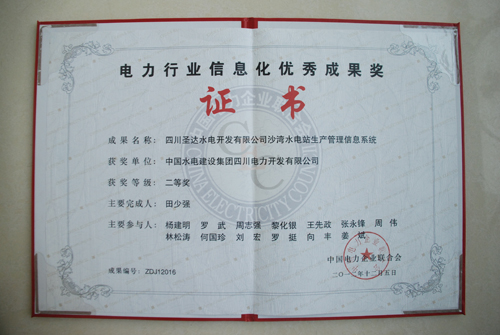 电力行业信息化优秀成果奖
证书
成果名称：四川圣达水电开发有限公司沙湾水电站生产管理信息系统
获奖单位：中国水电建设集团四川电力开发有限公司
获奖等级：二等奖
主要完成人：田少强
主要参与人：杨建明 罗武 周志强 黎化银 王先政 张永锋 周伟
林松涛 何国珍 刘宏 罗挺 向丰 姜斌
中国电力企业联合会
成果编号：ZDJ12016
二〇一二年十二月五日